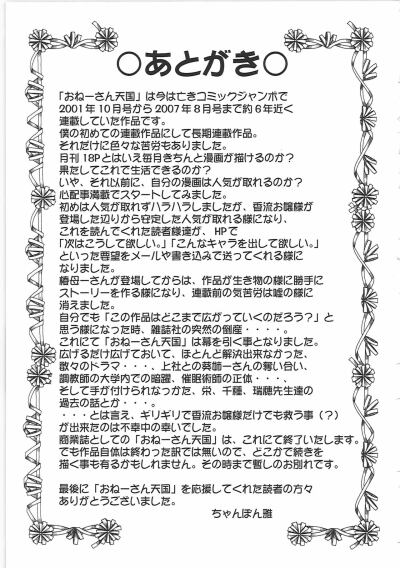 ○あとがき○
「おねーさん天国」は今は亡きコミックジャンボで
2001年10月号から2007年8月号まで約6年近く
連載していた作品です。
僕の初めての連載作品にして長期連載作品。
それだけに色々な苦労もありました。
月刊18Pとはいえ毎月きちんと漫画が描けるのか?
果たしてこれで生活できるのか?
いや、それ以前に、自分の漫画は人気が取れるのか?
心配事満載でスタートしてみました。
初めは人気が取れずハラハラしましたが、香流お嬢様が
登場した辺りから安定した人気が取れる様になり、
これを読んでくれた読者様達が、HPで
「次はこうして欲しい。」「こんなキャラを出して欲しい。」
といった要望をメールや書き込みで送ってくれる様に
なりました。
椿母ーさんが登場してからは、作品が生き物の様に勝手に
ストーリーを作る様になり、連載前の気苦労は嘘の様に
消えました。
自分でも「この作品はどこまで広がっていくのだろう?」と
思う様になった時、雑誌社の突然の倒産・・・・。
これにて「おねーさん天国」は幕を引く事となりました。
広げるだけ広げておいて、ほとんど解決出来なかった、
数々のドラマ・・・、上社との葵姉ーさんの奪い合い、
調教師の大学内での暗躍、催眠術師の正体・・・、
そして手が付けられなっかた、栄、千種、瑞穂先生達の
過去の話とか・・・。
・・・とは言え、ギリギリで香流お嬢様だけでも救う事(?)
が出来たのは不幸中の幸いでした。
商業誌としての「おねーさん天国」は、これにて終了いたします。
でも作品自体は終わった訳では無いので、どこかで続きを
描く事も有るかもしれません。その時まで暫しのお別れです。
最後に「おねーさん天国」を応援してくれた読者の方々
ありがとうございました。
ちゃんぽん雅